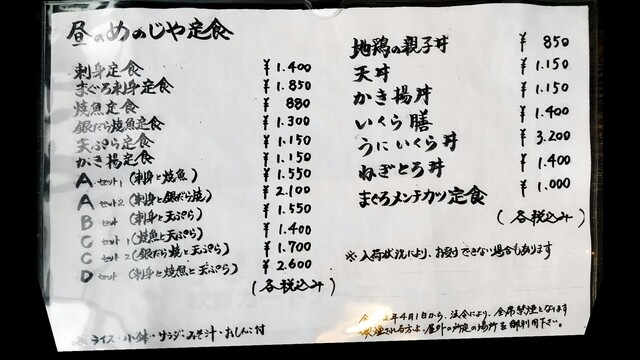 昼のめのじや定食
刺身定食 ¥1.400
まぐろ刺身定食 ¥1.850
焼魚定食 ¥880
銀だら焼魚定食 ¥1.300
天ぷら定食 ¥1.150
かき揚定食 ¥1.150
A セット1 (刺身と焼魚) ¥1.550
A セット2 (刺身と銀だら焼) ¥2.100
B セット (刺身と天ぷら) ¥1.550
C セット1 (焼魚と天ぷら) ¥1.400
C セット2 (銀だら焼と天ぷら) ¥1.700
D セット (刺身と焼魚と天ぷら) ¥2.600
(各税込み)
ライス・小鉢・サラダ・みそ汁・おしんこ付
地鶏の親子丼 ¥850
天丼 ¥1.150
かき揚丼 ¥1.150
いくら膳 ¥1.400
うにいくら丼 ¥3.200
ねぎとろ丼 ¥1.400
まぐろメンチカツ定食 ¥1.000
(各税込み)
※入荷状況により、お受けできない場合もあります
年4月1日から、法令により、全席禁煙となります
方は、屋外の所定の場所を御利用下さい。